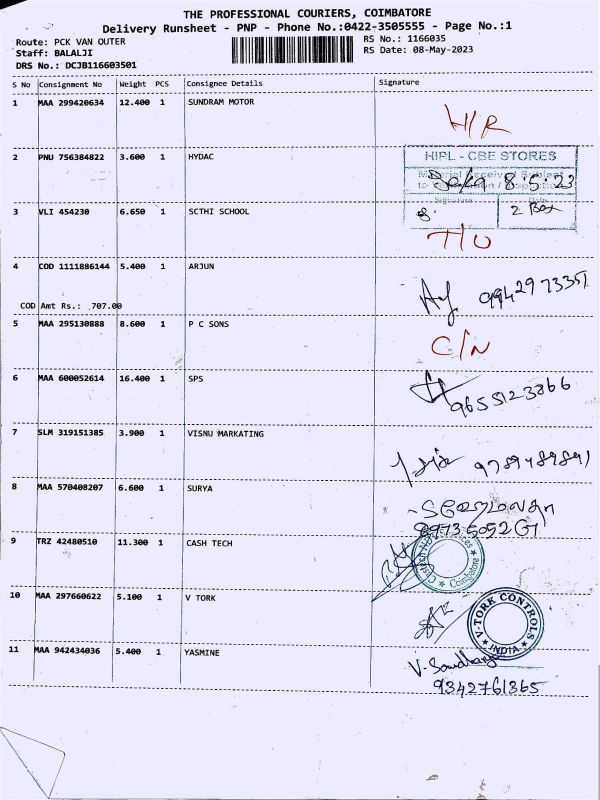 THE PROFESSIONAL COURIERS, COIMBATORE
Delivery Runsheet - PNP - Phone No.:0422-3505555 - Page No.:1
Route: PCK VAN OUTER
Staff: BALALJI
DRS No.: DCJB116603501
RS No.: 1166035
RS Date: 08-May-2023
S No Consignment No Weight PCS Consignee Details Signature
1 MAA 299420634 12.400 1 SUNDRAM MOTOR
H/R
2 PNU 756384822 3.600 1 HYDAC
HIPL - CBE STORES
8.5.23
Signature
2 Box
3 VLI 454230 6.650 1 SCTHI SCHOOL
T/U
4 COD 1111886144 5.400 1 ARJUN
COD Amt Rs.: 707.00
5 MAA 295130888 8.600 1 P C SONS
C/N
6 MAA 600052614 16.400 1 SPS
9655123866
7 SLM 319151385 3.900 1 VISNU MARKATING
8 MAA 570408207 6.600 1 SURYA
9 TRZ 42480510 11.300 1 CASH TECH
Coimbatore
10 MAA 297660622 5.100 1 V TORK
V-TORK CONTROLS
INDIA
11 MAA 942434036 5.400 1 YASMINE
9342761365